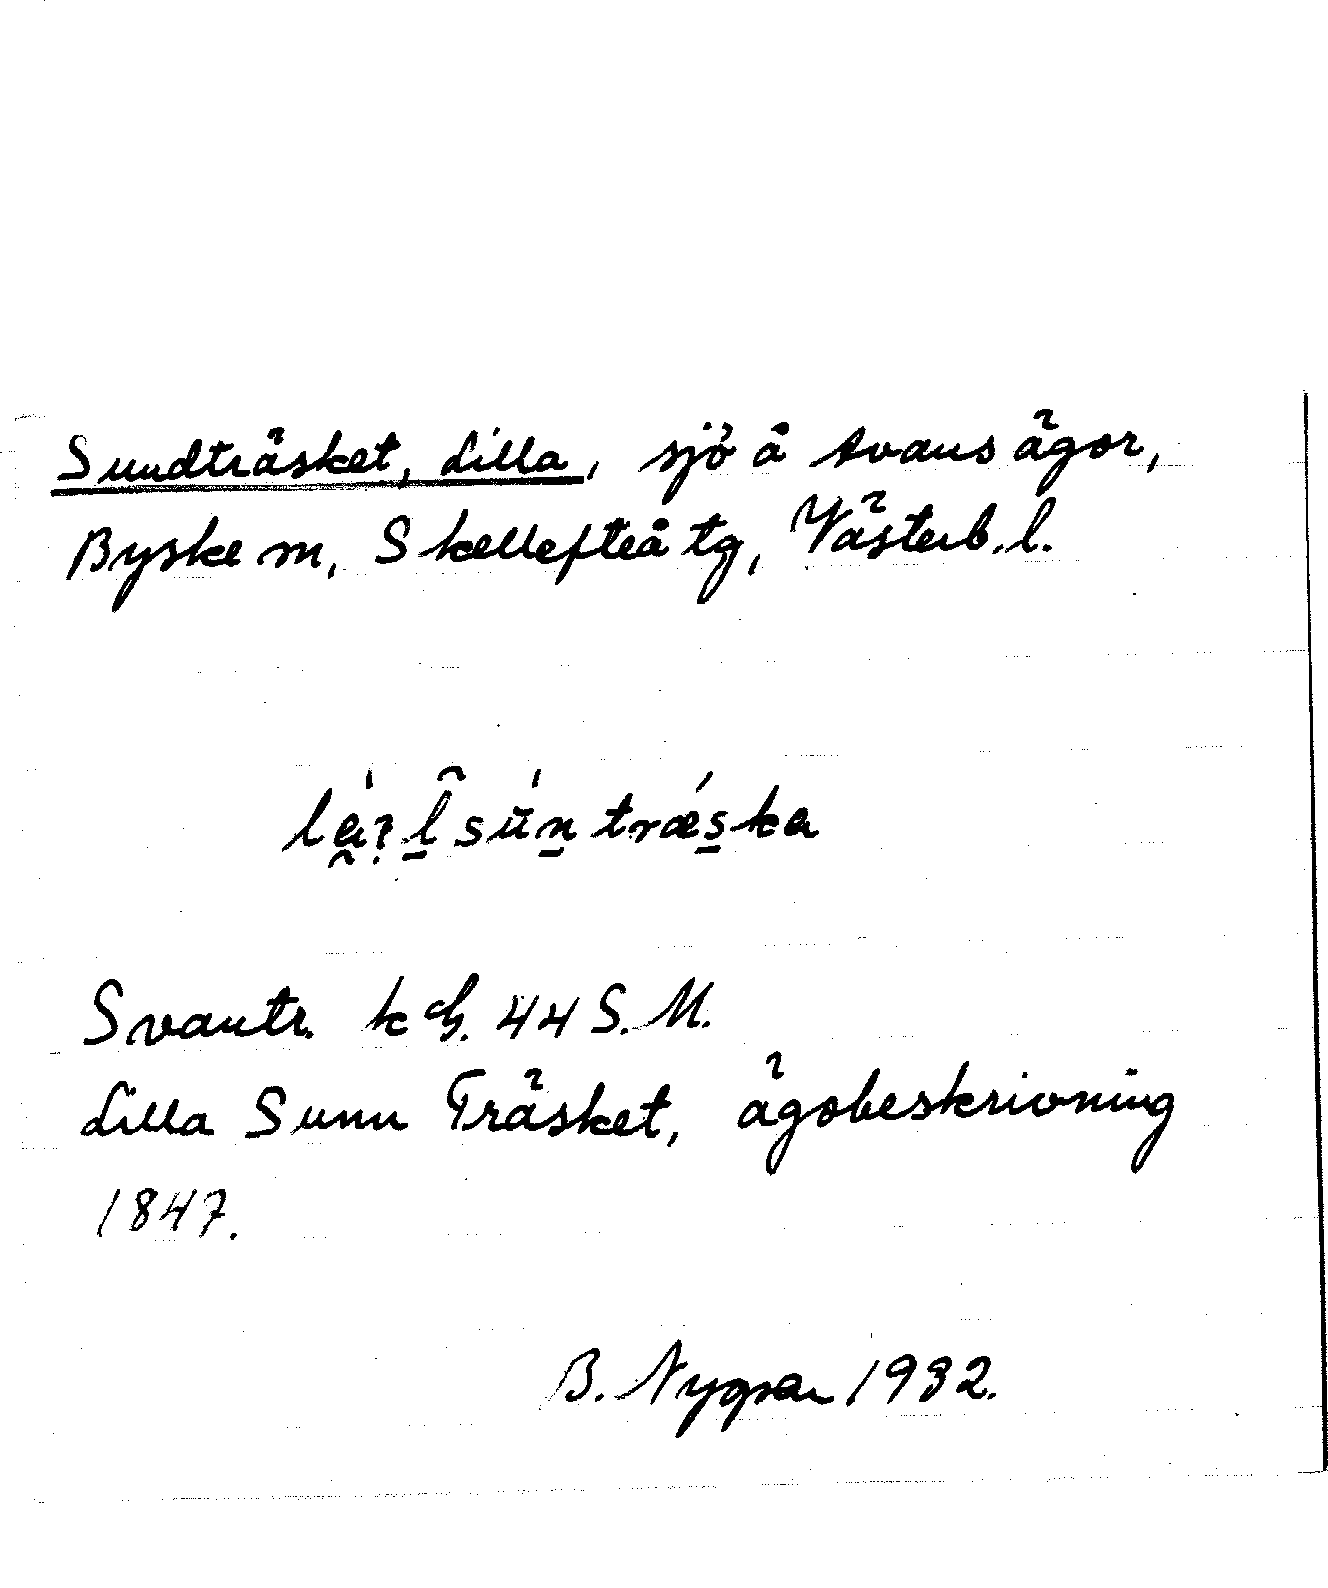 Sundträsket, Lilla, sjö å Avans ägor,
Byske sn, Skellefteå tg, Västerb. l.
Svantr. k bl. 44 S. M.
Lilla Sunn Träsket, ägobeskrivning
1847.
B. Nygren 1932.